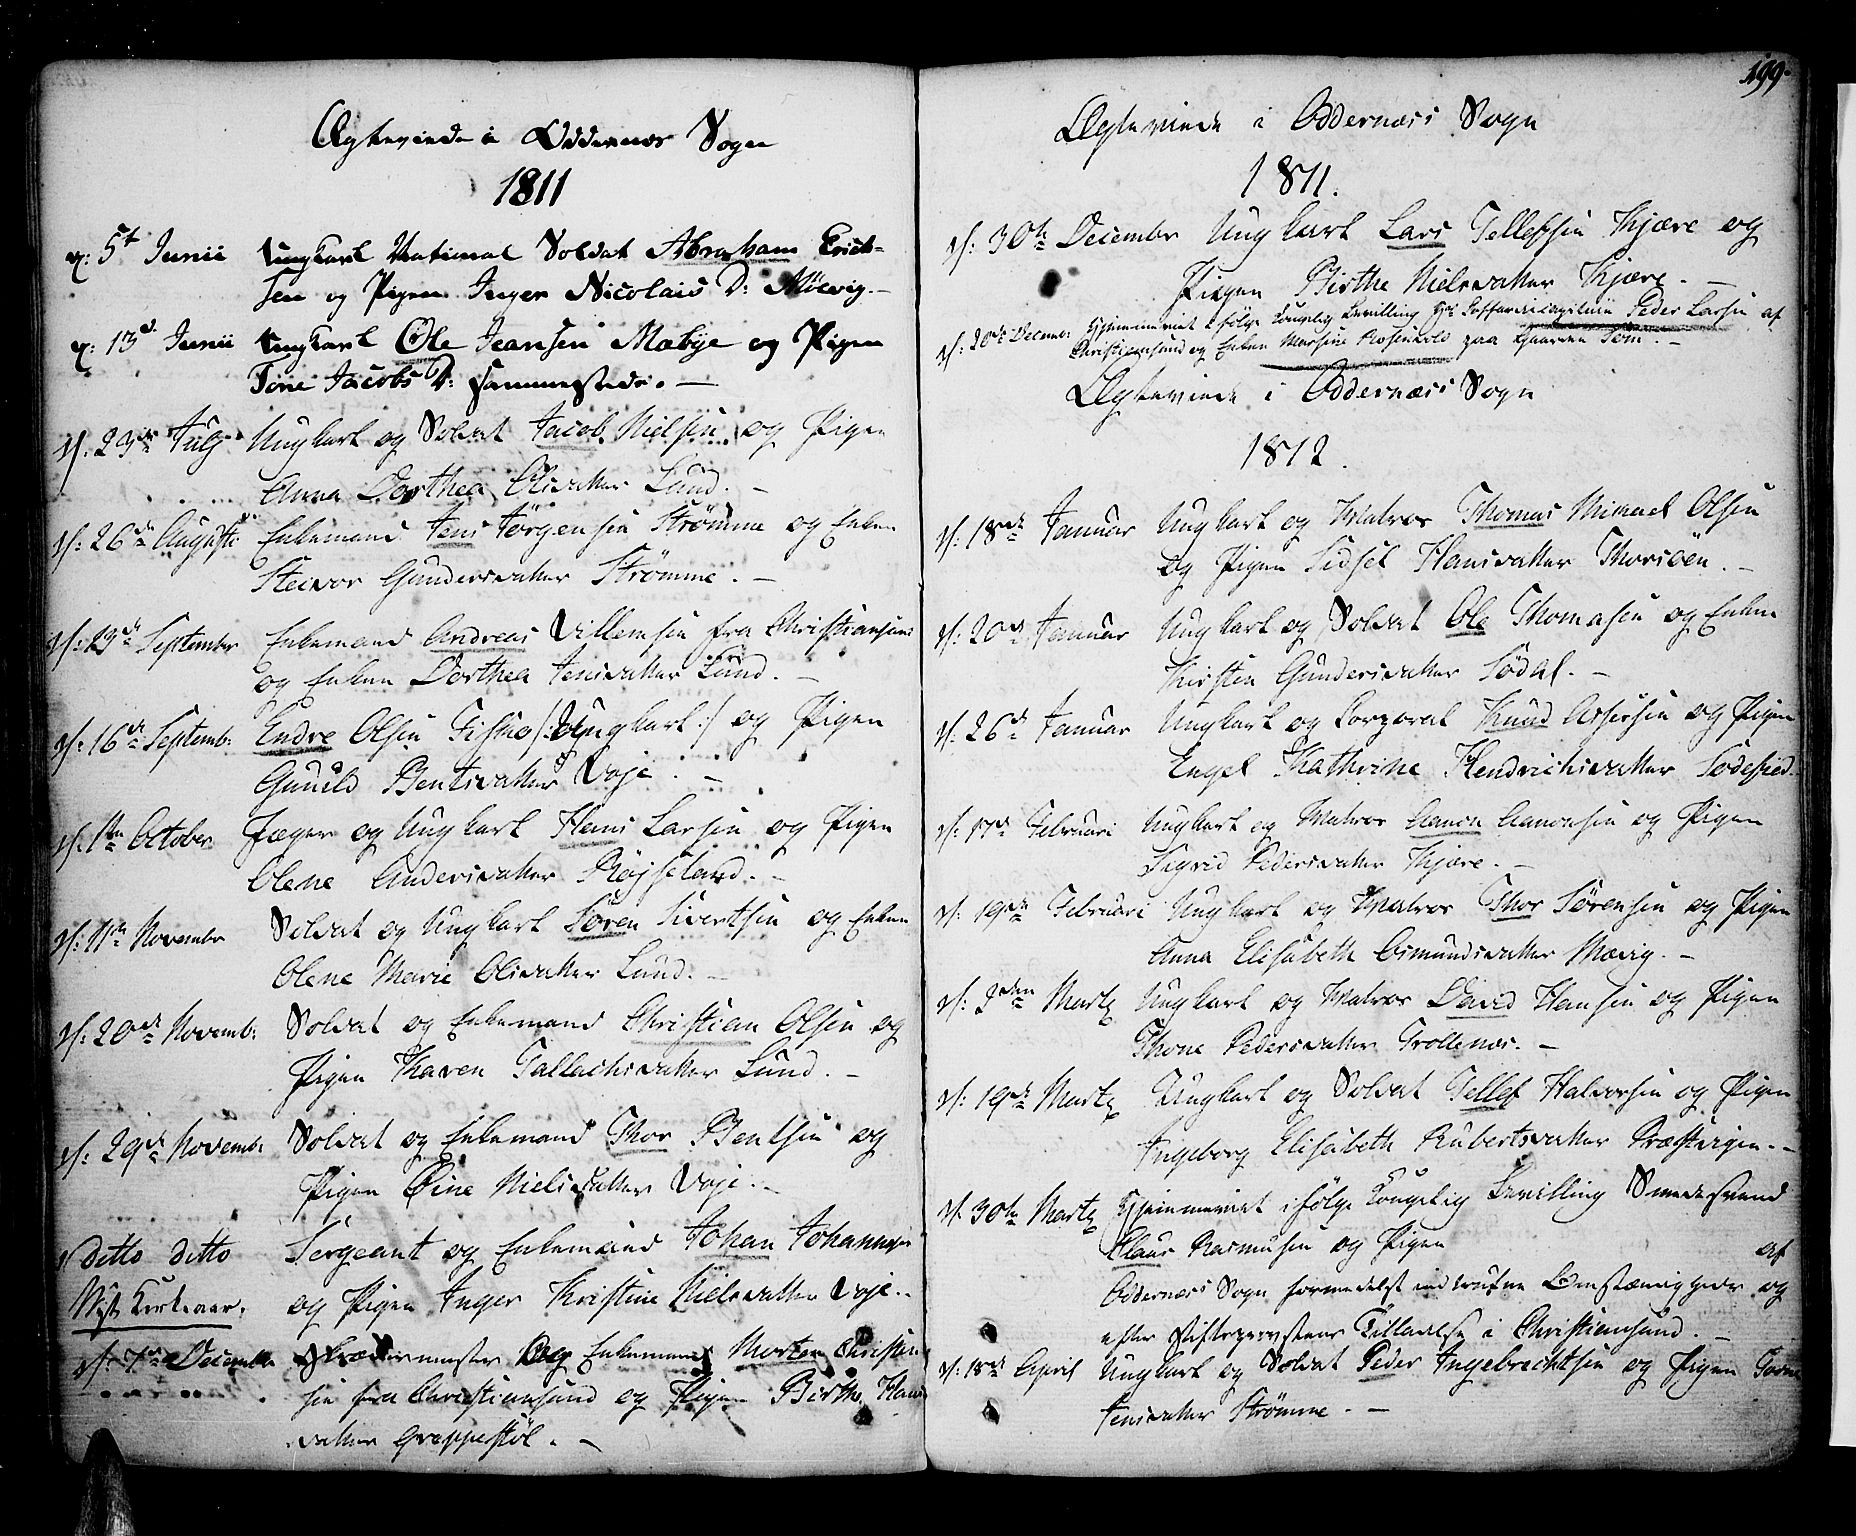 Ægteviede i Oddernæs Sogn
1811
d: 5t Junii Ungkarl National Soldat Abraham Erich-
sen og Pigen Inger Nicolais D: Mölvig.—
d: 13d Junii Ungkarl Ole Jeansen Mæbye og Pigen
Tone Jacobs D: sammesteds.—
d: 23de July Ungkarl og Soldat Jacob Nielsen og Pigen
Anna Dorthea Olisdatter Lund.—
d: 26de Augusti Enkemand Jens Jörgensen Strömme og Enken
Steivor Gundersdatter Strömme.—
d: September Enkemand Andreas Villemsen fra Christiansand
og Enken Dorthea Jensdatter Lund.—
d: 16de Septemb: Endre Olsen Fiskaa /: Ungkarl :/ og Pigen
Gunild Bentsdatter Voje.—
d: 1ste October Jæger og Ungkarl Hans Larsen og Pigen
Olene Andersdatter Röjseland.—
d: 11te Novembr Soldat og Ungkarl Sören Sivertsen og Enken
Olene Marie Olisdatter Lund.—
d: 20de Novemb: Soldat og Enkemand Christian Olsen og
Pigen Karen Tallachsdatter Lund.—
d: 29de Novemb: Soldat og Enkemand Thor Bentsen og
Pigen Öine Nielsdatter Voje.—
d ditto ditto Sergeant og Enkemand Johan Johannesen
og Pigen Inger Kristine Nielsdatter Voje.—
Nyt Kirkeaar.
d: 7de December Skrædermester og Enkemand Morten Christen
sen fra Christiansand og Pigen Birthe Hans
datter Greppestöl.—
199.
Ægteviede i Oddernæss Sogn
1811.
d: 30te Decembr Ungkarl Lars Tellefsen Kjære og
Pigen Birthe Nielsdatter Kjære.—
d: 20de Decembr Hjemmeviet i følge Kongelig Bevilling Hr Peder Larsen af
Christiansand og Enken Marsine Rosenkold paa Gaarden Tom.—
Ægteviede i Oddernæss Sogn
1812.
d: 18de Januar Ungkarl og Matros Thomas Mikael Olsen
og Pigen Sidsel Hansdatter Thorsöen.—
d: 20de Januar Ungkarl og Soldat Ole Thomasen og Enken
Kirsten Gundersdatter Södal.—
d: 26de Januar Ungkarl og Corporal Knud Assersen og Pigen
Engel Kathrine Hendrichsdatter
d: 17de Februari Ungkarl og Matros Aanon Aanonsen og Pigen
Sigrid Pedersdatter Kjære.—
d: 19de Februari Ungkarl og Matros Thor Sörensen og Pigen
Anna Elisabeth Osmundsdatter Mævig.—
d: Martz Ungkarl og Matros David Hansen og Pigen
Thone Pedersdatter Trollenæs.—
d: 19de Martz Ungkarl og Soldat Tellef Halvorsen og Pigen
Ingeborg Elisabeth Rubertsdatter Præstvigen.—
d: 30te Martz Hjemmeviet i følge Kongelig Bevilling Smedesvend
Claus Rasmusen og Pigen af
Oddernæs Sogn formedelst indtrufne Omstændigheder og
efter Stiftsprovstens Tilladelse i Christiansand.—
d: 18de April Ungkarl og Soldat Peder Ingebrechtsen og Pigen
Jensdatter Strömme.—